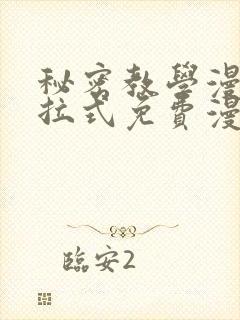 秘密教學漫
拉式免費漫
臨安2